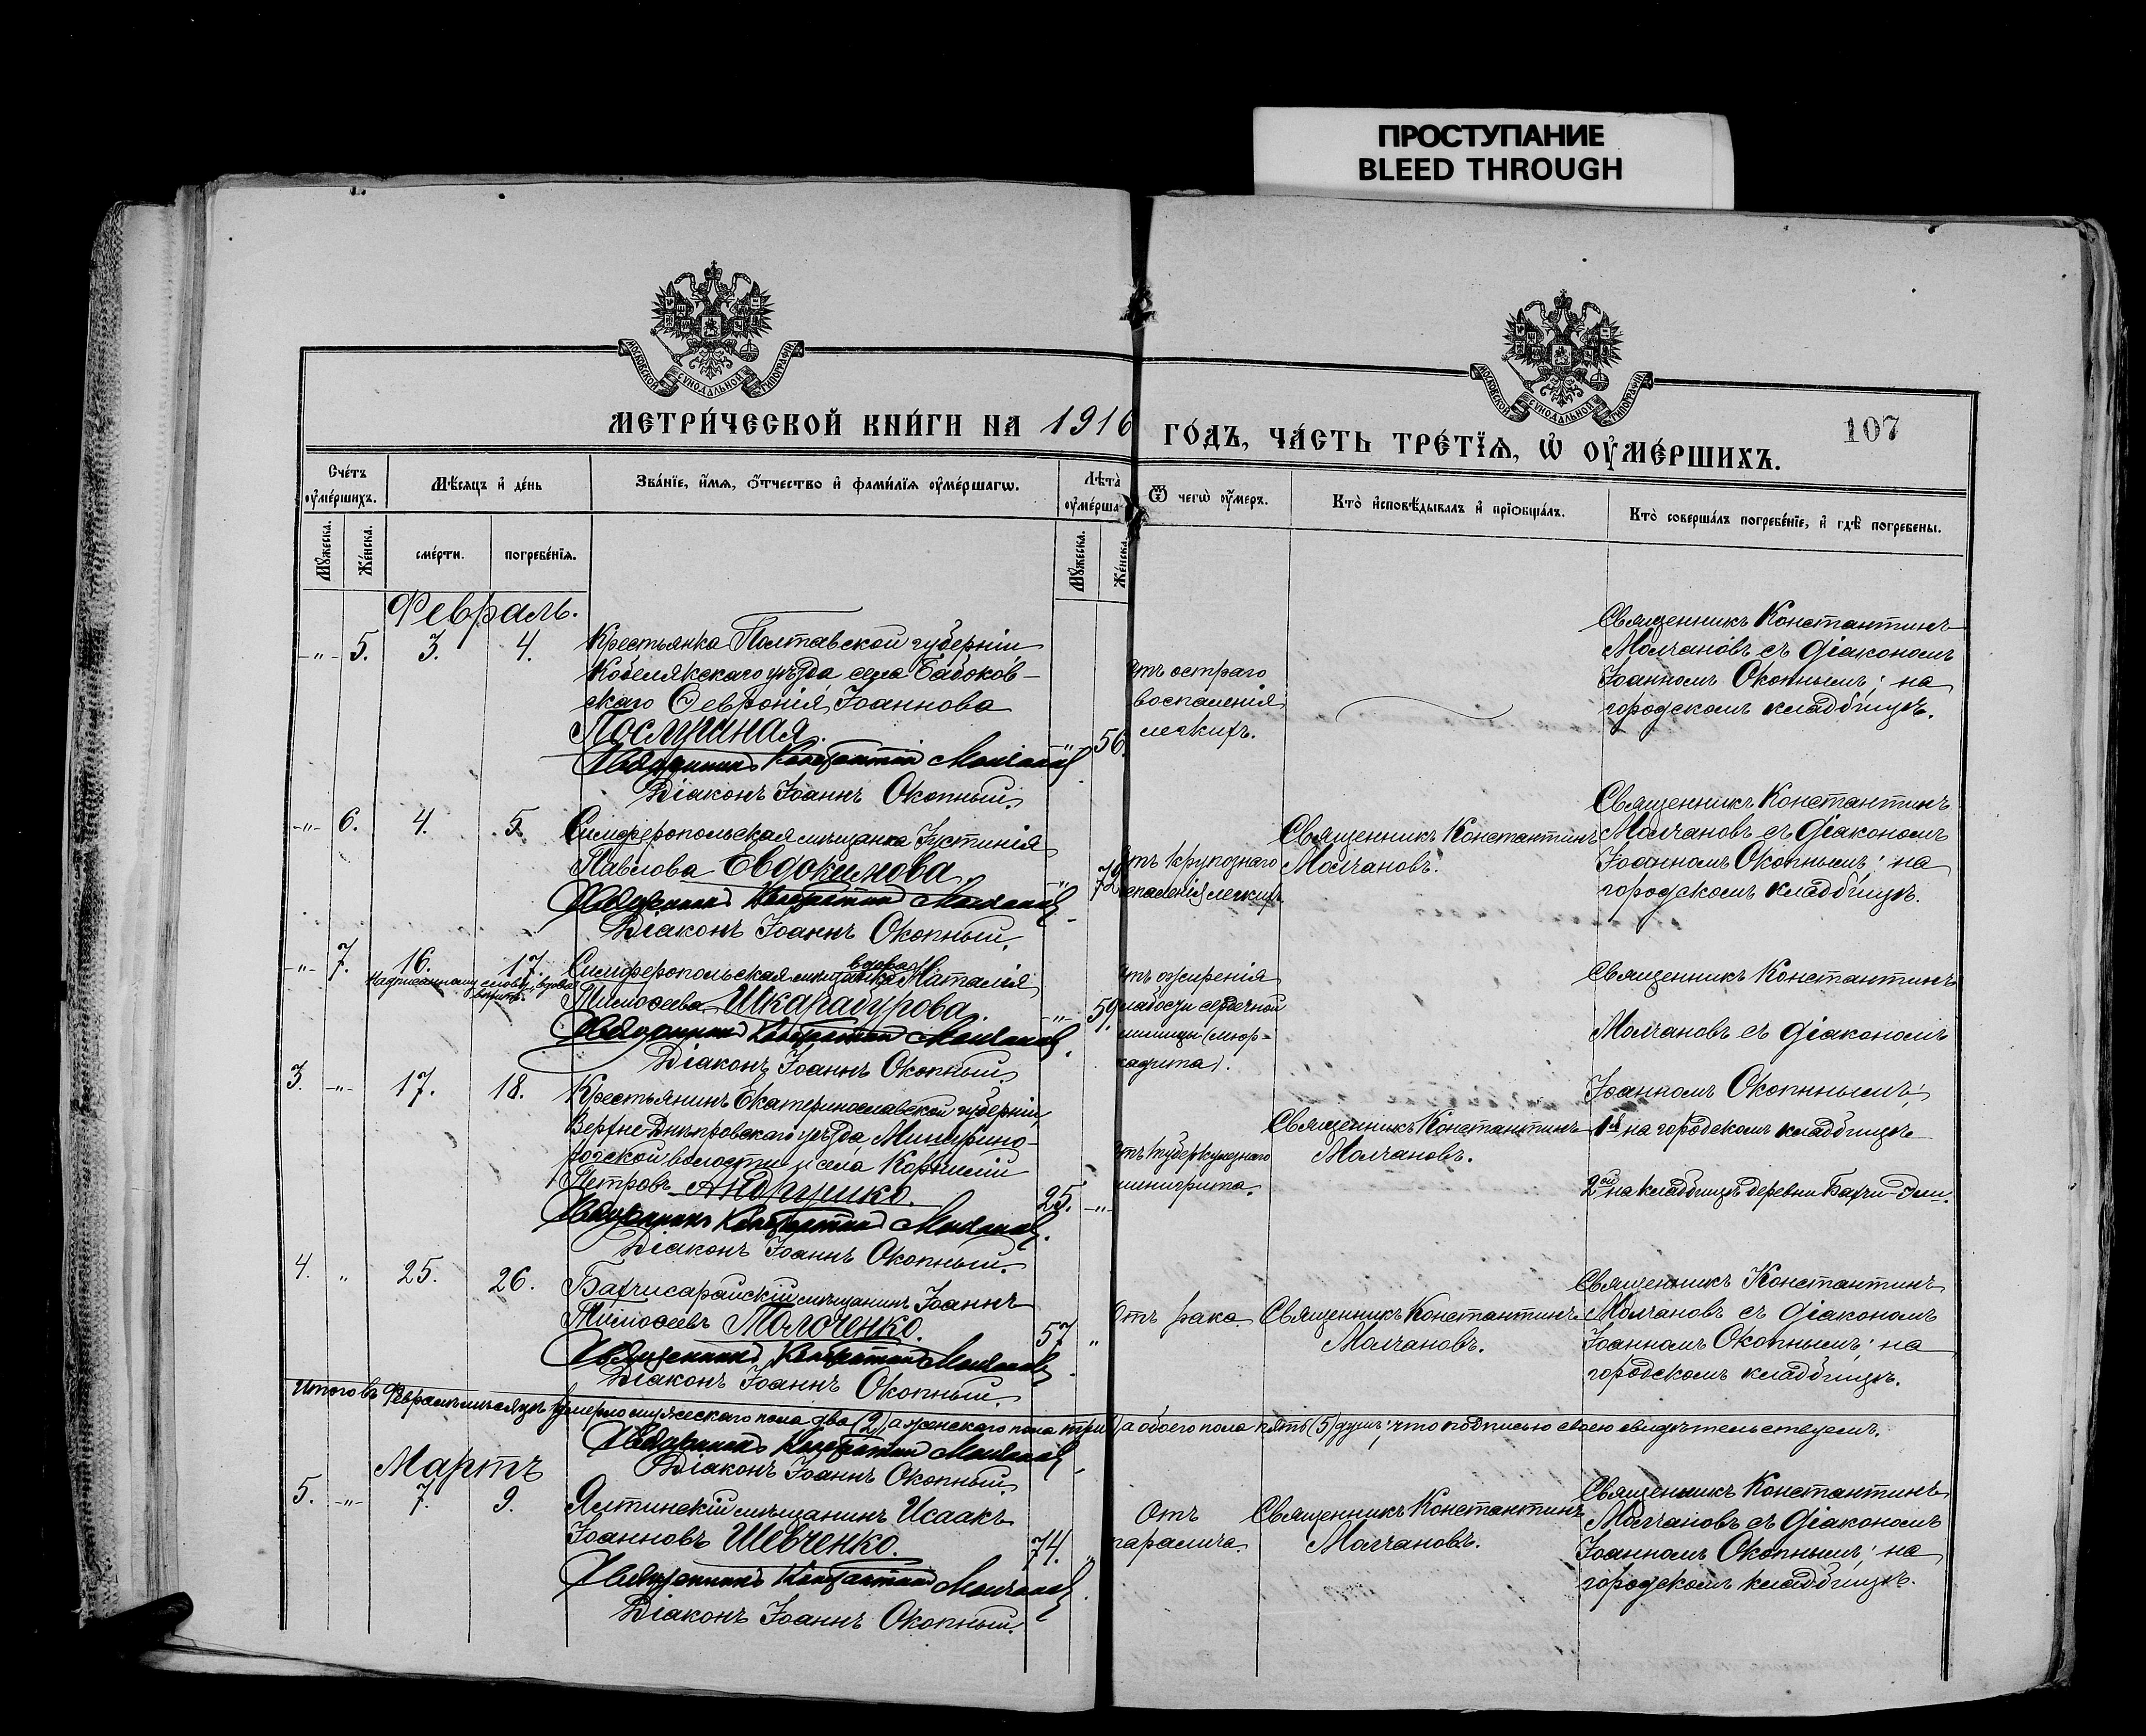 ПРОСТУПАНИЕ
BLEED THROUGH
МОСКОВСКОЙ СѴНОДАЛЬНОЙ ТИПОГРАФІИ
МОСКОВСКОЙ СѴНОДАЛЬНОЙ ТИПОГРАФІИ
МЕТРИ́ЧЕСКОЙ КНИ́ГИ НА 1916 ГО́ДЪ, ЧА́СТЬ ТРЕ́ТЇѦ, Ѡ҆ ОУ҆МЕ́РШИХЪ.
107
Счétъ оу҆ме́ршихъ.
Мѣ́сяцъ и҆ де́нь
Зва́нїе, и҆́мѧ, ѻ҆́тчество и҆ фами́лїѧ оу҆ме́ршагѡ.
Лѣ́та оу҆ме́рша
Ѿ чегѡ̀ оу҆́меръ.
Кто̀ и҆сповѣ́дывалъ и҆ прїѻбща́лъ.
Кто̀ соверша́лъ погребе́нїе, и҆ гдѣ̀ погребены.
Мꙋ́жеска.
Же́нска.
сме́рти.
погребе́нїѧ.
Мꙋ́жеска.
Же́нска.
Февраль.
-"- 5. 3. 4. Крестьянка Полтавской губерніи
Кобелякскаго уѣзда, села Бабоков-
скаго Ѳевронія Іоаннова
Послушная.
-"- 56.
Священникъ Константинъ Молчановъ
Діаконъ Іоаннъ Окопный.
отъ остраго
воспаленія
легкихъ.
Священникъ Константинъ
Молчановъ съ діакономъ
Іоанномъ Окопнымъ; на
городскомъ кладбищѣ.
-"- 6. 4. 5. Симферопольская мѣщанка Іустинія
Павлова Евдокимова.
-"- 72
Священникъ Константинъ Молчановъ
Діаконъ Іоаннъ Окопный.
отъ крупознаго
воспаленія легкихъ.
Священникъ Константинъ
Молчановъ.
Священникъ Константинъ
Молчановъ съ діакономъ
Іоанномъ Окопнымъ; на
городскомъ кладбищѣ.
-"- 7. 16. 17. Симферопольская мѣщанка вдова Наталія
Надписанному слову „вдова" вѣрить.
Тимоѳеева Шкарабурова.
-"- 59.
Священникъ Константинъ Молчановъ
Діаконъ Іоаннъ Окопный.
отъ ожиренія
слабости сердечной
мышцы (міор-
кадита).
Священникъ Константинъ
Молчановъ съ діакономъ
Іоанномъ Окопнымъ;
1я на городскомъ кладбищѣ
2ой на кладбищѣ деревни Бахчи-Эли.
3. -"- 17. 18. Крестьянинъ Екатеринославской губерніи,
Верхнеднѣпровскаго уѣзда, Мишурино-
рогской волости и села Корнилій
Петровъ Андрущко.
25. -"-
Священникъ Константинъ Молчановъ
Діаконъ Іоаннъ Окопный.
отъ туберкулезнаго
менингита.
Священникъ Константинъ
Молчановъ.
4. " 25. 26. Бахчисарайскій мѣщанинъ Іоаннъ
Тимоѳеевъ Толоченко.
57 "
Священникъ Константинъ Молчановъ
Діаконъ Іоаннъ Окопный.
Отъ рака.
Священникъ Константинъ
Молчановъ.
Священникъ Константинъ
Молчановъ съ діакономъ
Іоанномъ Окопнымъ; на
городскомъ кладбищѣ.
Итого въ Февралѣ мѣсяцѣ умерло мужескаго пола два (2), а женскаго пола три, а обоего пола пять (5) душъ; что подписью своею свидѣтельствуемъ.
Священникъ Константинъ Молчановъ
Діаконъ Іоаннъ Окопный.
Мартъ
5. -"- 7. 9. Ялтинскій мѣщанинъ Исаакъ
Іоанновъ Шевченко.
74. "
Священникъ Константинъ Молчановъ
Діаконъ Іоаннъ Окопный.
Отъ
паралича.
Священникъ Константинъ
Молчановъ.
Священникъ Константинъ
Молчановъ съ діакономъ
Іоанномъ Окопнымъ; на
городскомъ кладбищѣ.